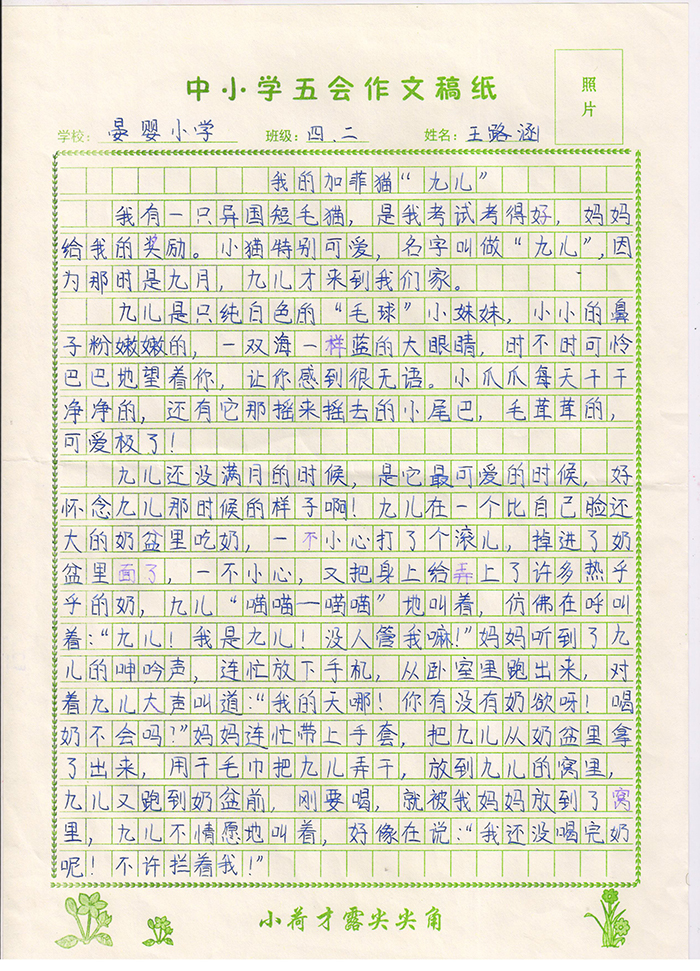 中小学五会作文稿纸
照
片
学校: 晏婴小学 班级: 四.二 姓名: 王路涵
我的加菲猫“九儿”
我有一只异国短毛猫，是我考试考得好，妈妈
给我的奖励。小猫特别可爱，名字叫做“九儿”,因
为那时是九月，九儿才来到我们家。
九儿是只纯白色的“毛球”小妹妹，小小的鼻
子粉嫩嫩的，一双海一样蓝的大眼睛，时不时可怜
巴巴地望着你，让你感到很无语。小爪爪每天干干
净净的，还有它那摇来摇去的小尾巴，毛茸茸的，
可爱极了！
九儿还没满月的时候，是它最可爱的时候，好
怀念九儿那时候的样子啊！九儿在一个比自己脸还
大的奶盆里吃奶，一不小心打了个滚儿，掉进了奶
盆里面了，一不小心，又把身上给弄上了许多热乎
乎的奶，九儿“喵喵—喵喵”地叫着，仿佛在呼叫
着：“九儿！我是九儿！没人管我嘛！”妈妈听到了九
儿的呻吟声，连忙放下手机，从卧室里跑出来，对
着九儿大声叫道：“我的天哪！你有没有奶欲呀！喝
奶不会吗？”妈妈连忙带上手套，把九儿从奶盆里拿
了出来，用干毛巾把九儿弄干，放到九儿的窝里，
九儿又跑到奶盆前，刚要喝，就被我妈妈放到了窝
里，九儿不情愿地叫着，好像在说：“我还没喝完奶
呢！不许拦着我！”
小荷才露尖尖角